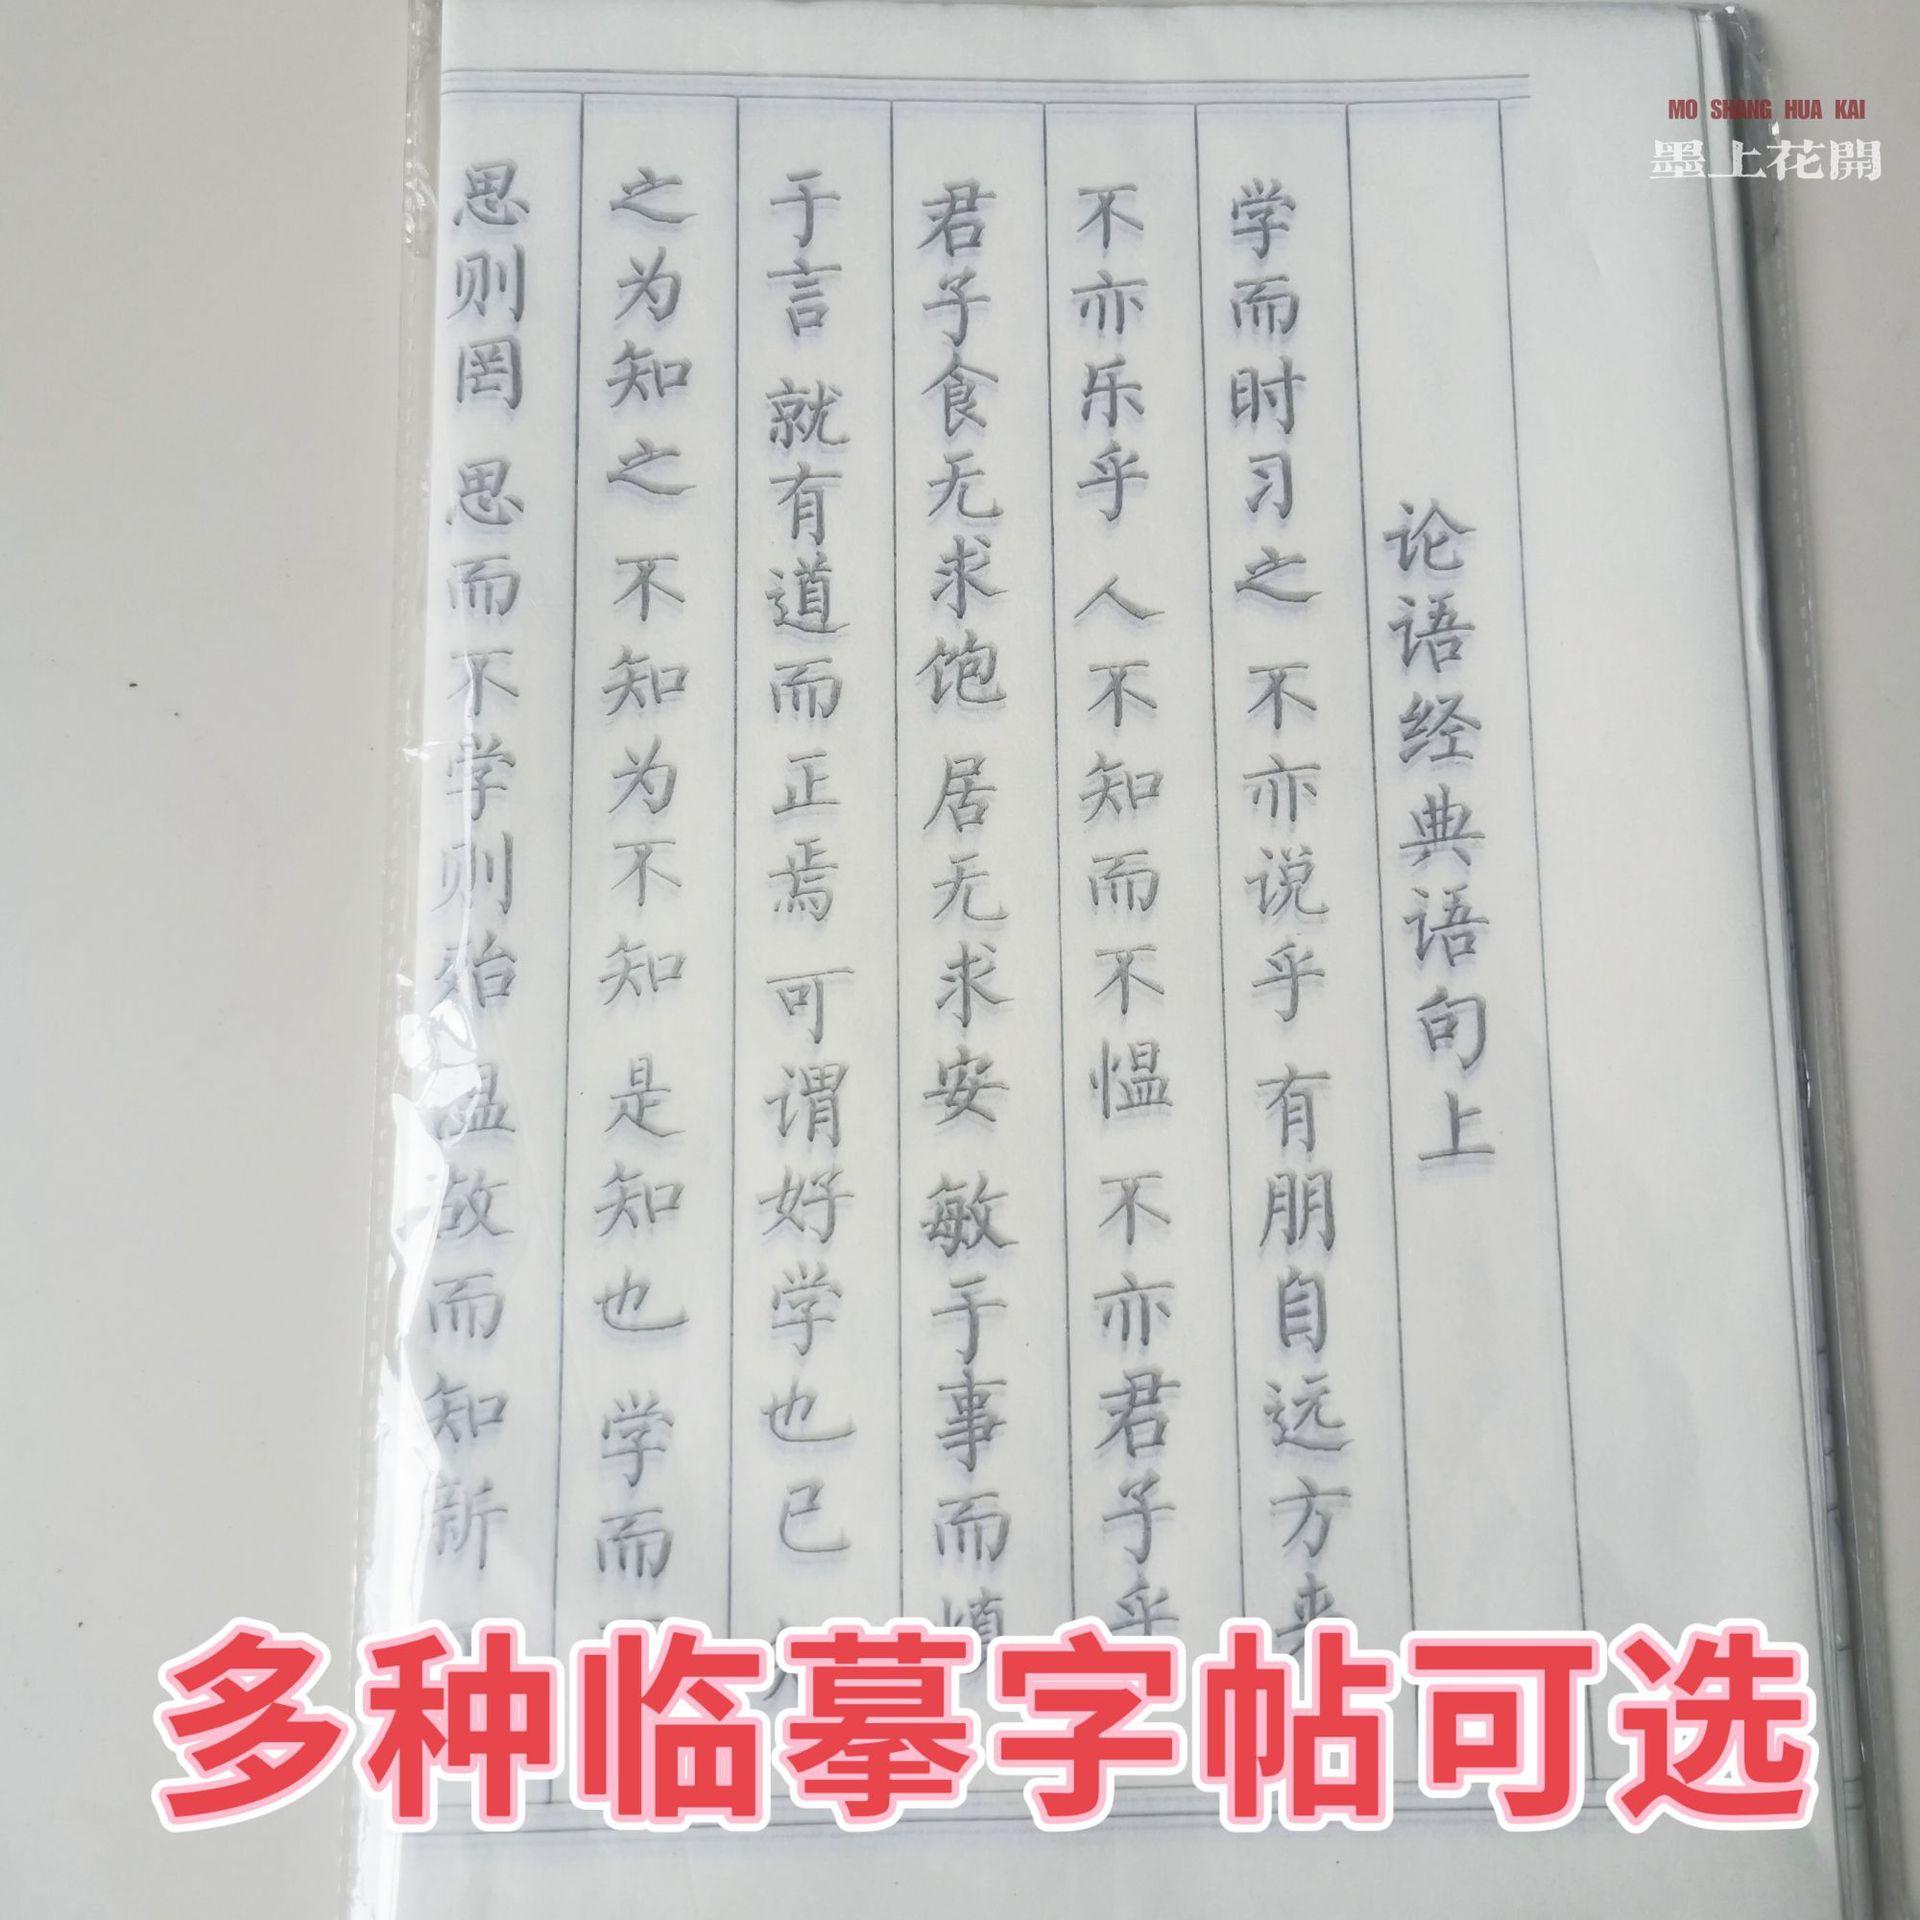 MO SHANG HUA KAI
墨上花開
论语经典语句上
学而时习之 不亦说乎 有朋自远方来
不亦乐乎 人不知而不愠 不亦君子乎
君子食无求饱 居无求安 敏于事而慎
于言 就有道而正焉 可谓好学也已
之为知之 不知为不知 是知也 学而
思则罔 思而不学则殆 温故而知新
多种临摹字帖可选